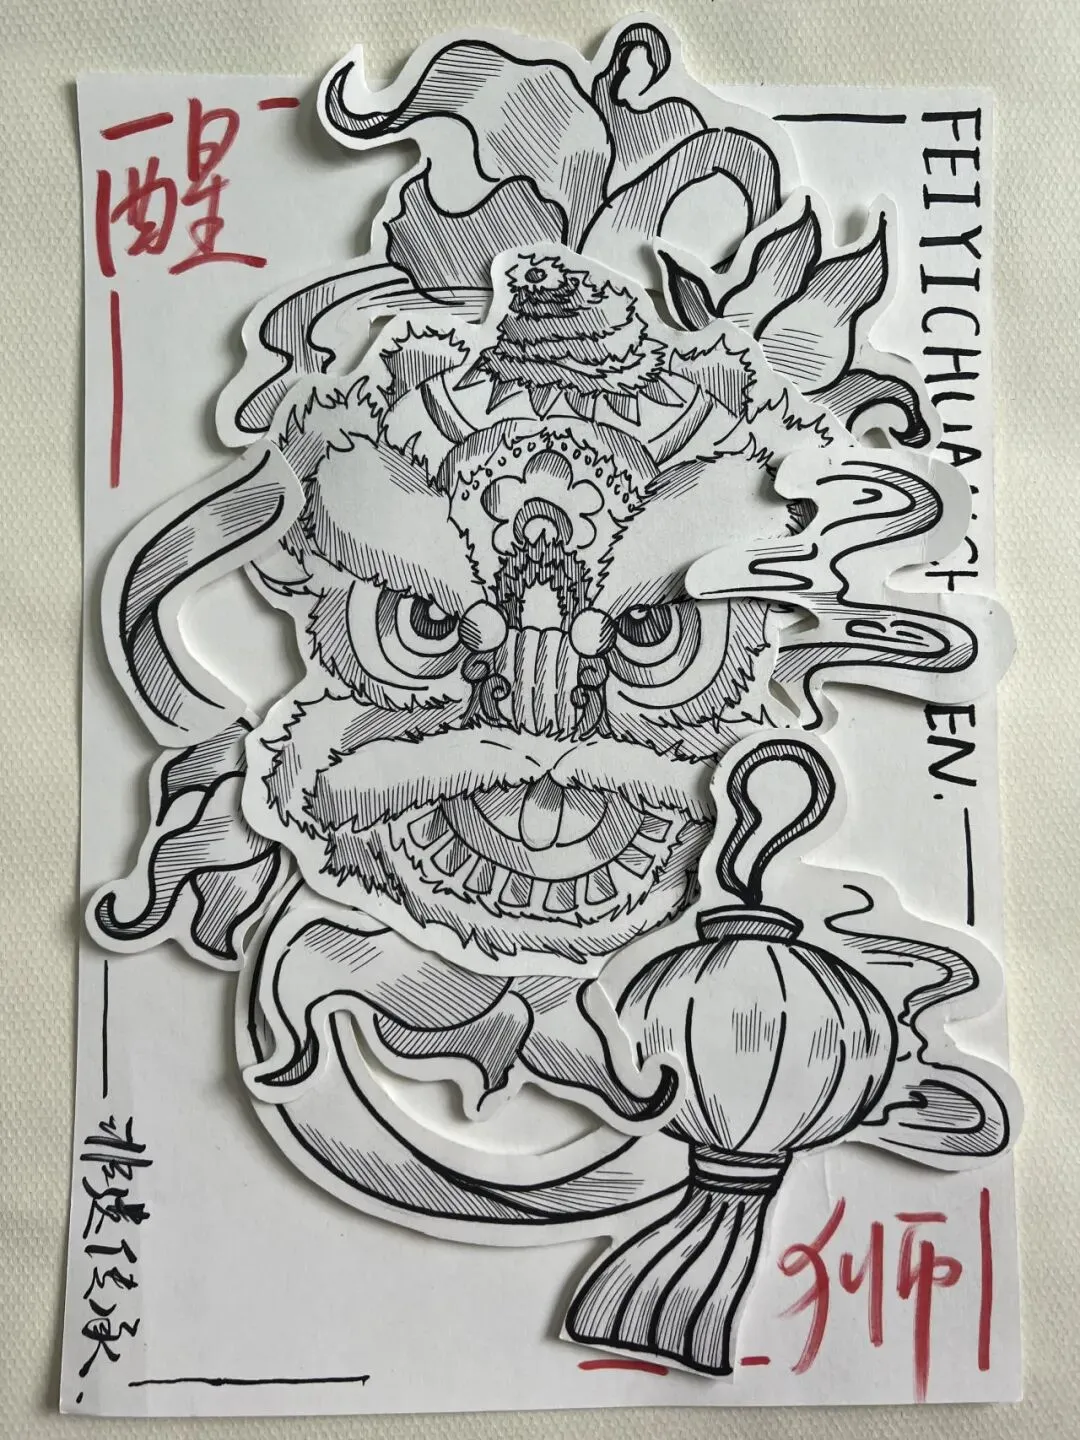 醒
FEIYICHUA CH EN.
非遗传承.
狮